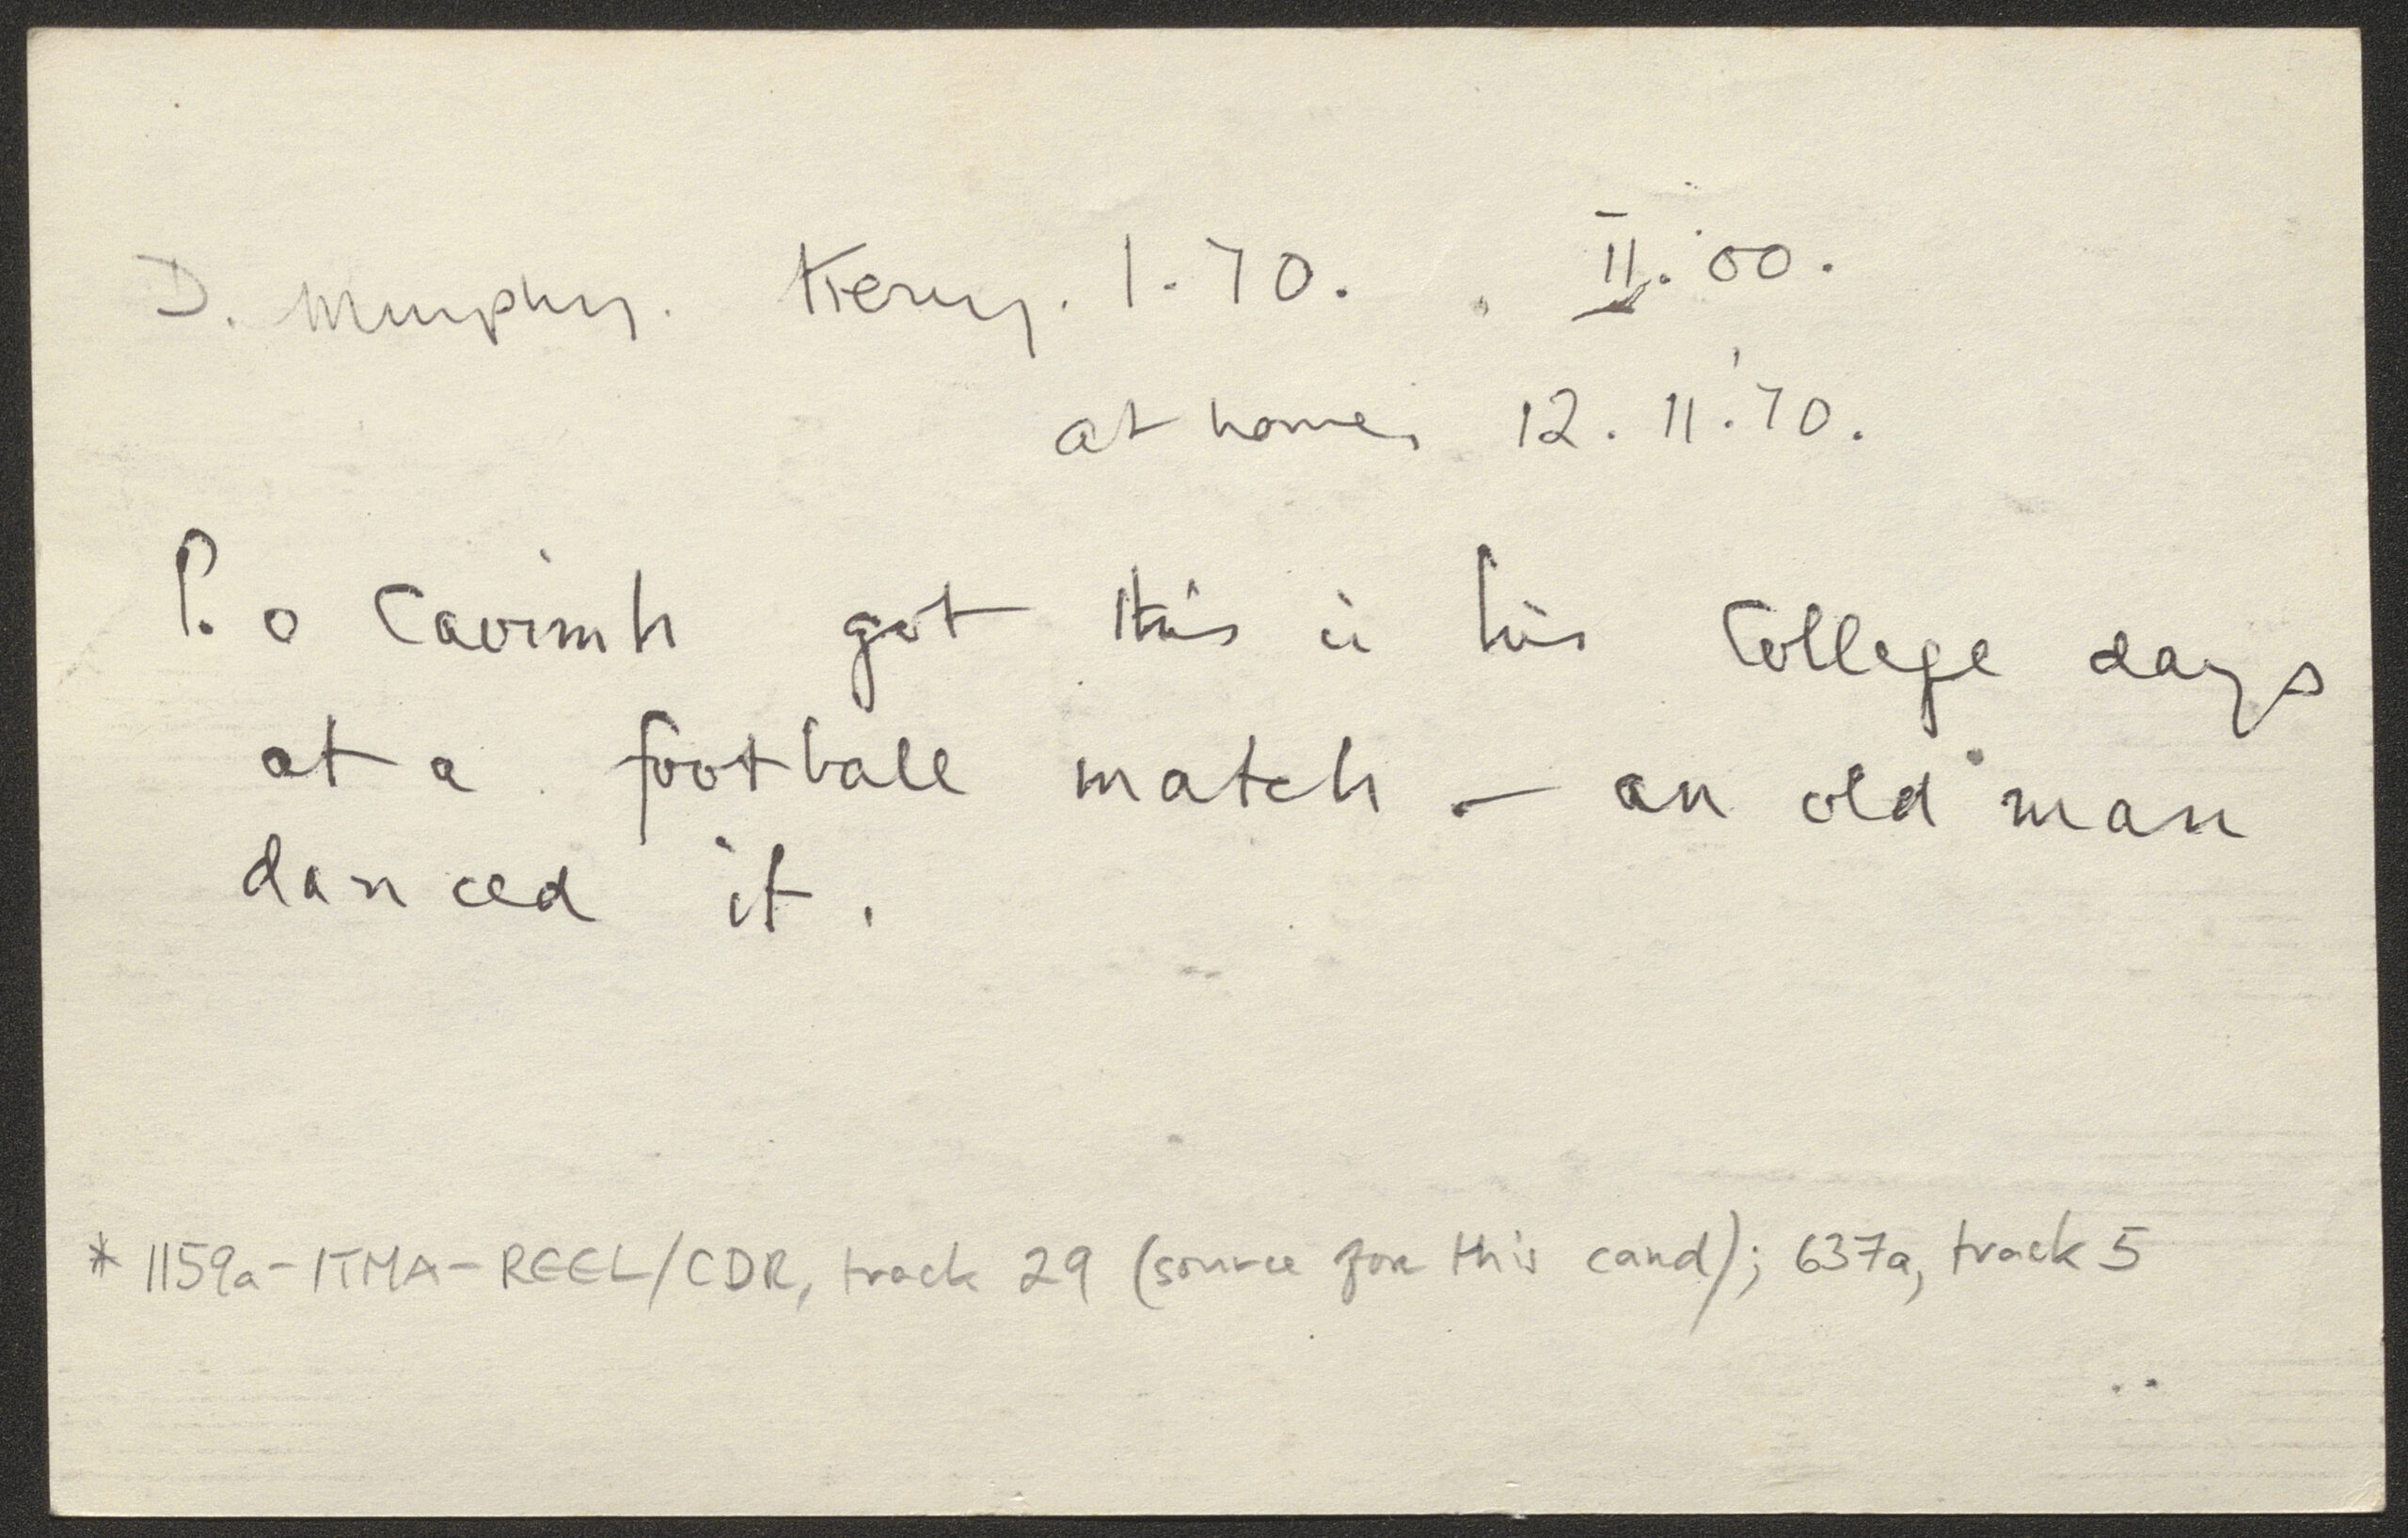 D. Murphy. Kerry. 1.70. II.'00.
at home, 12.11.'70.
P. o Caoimh got this i his College days
at a football match - an old man
danced it.
* 1159a-ITMA-REEL/CDR, track 29 (source for this card); 637a, track 5